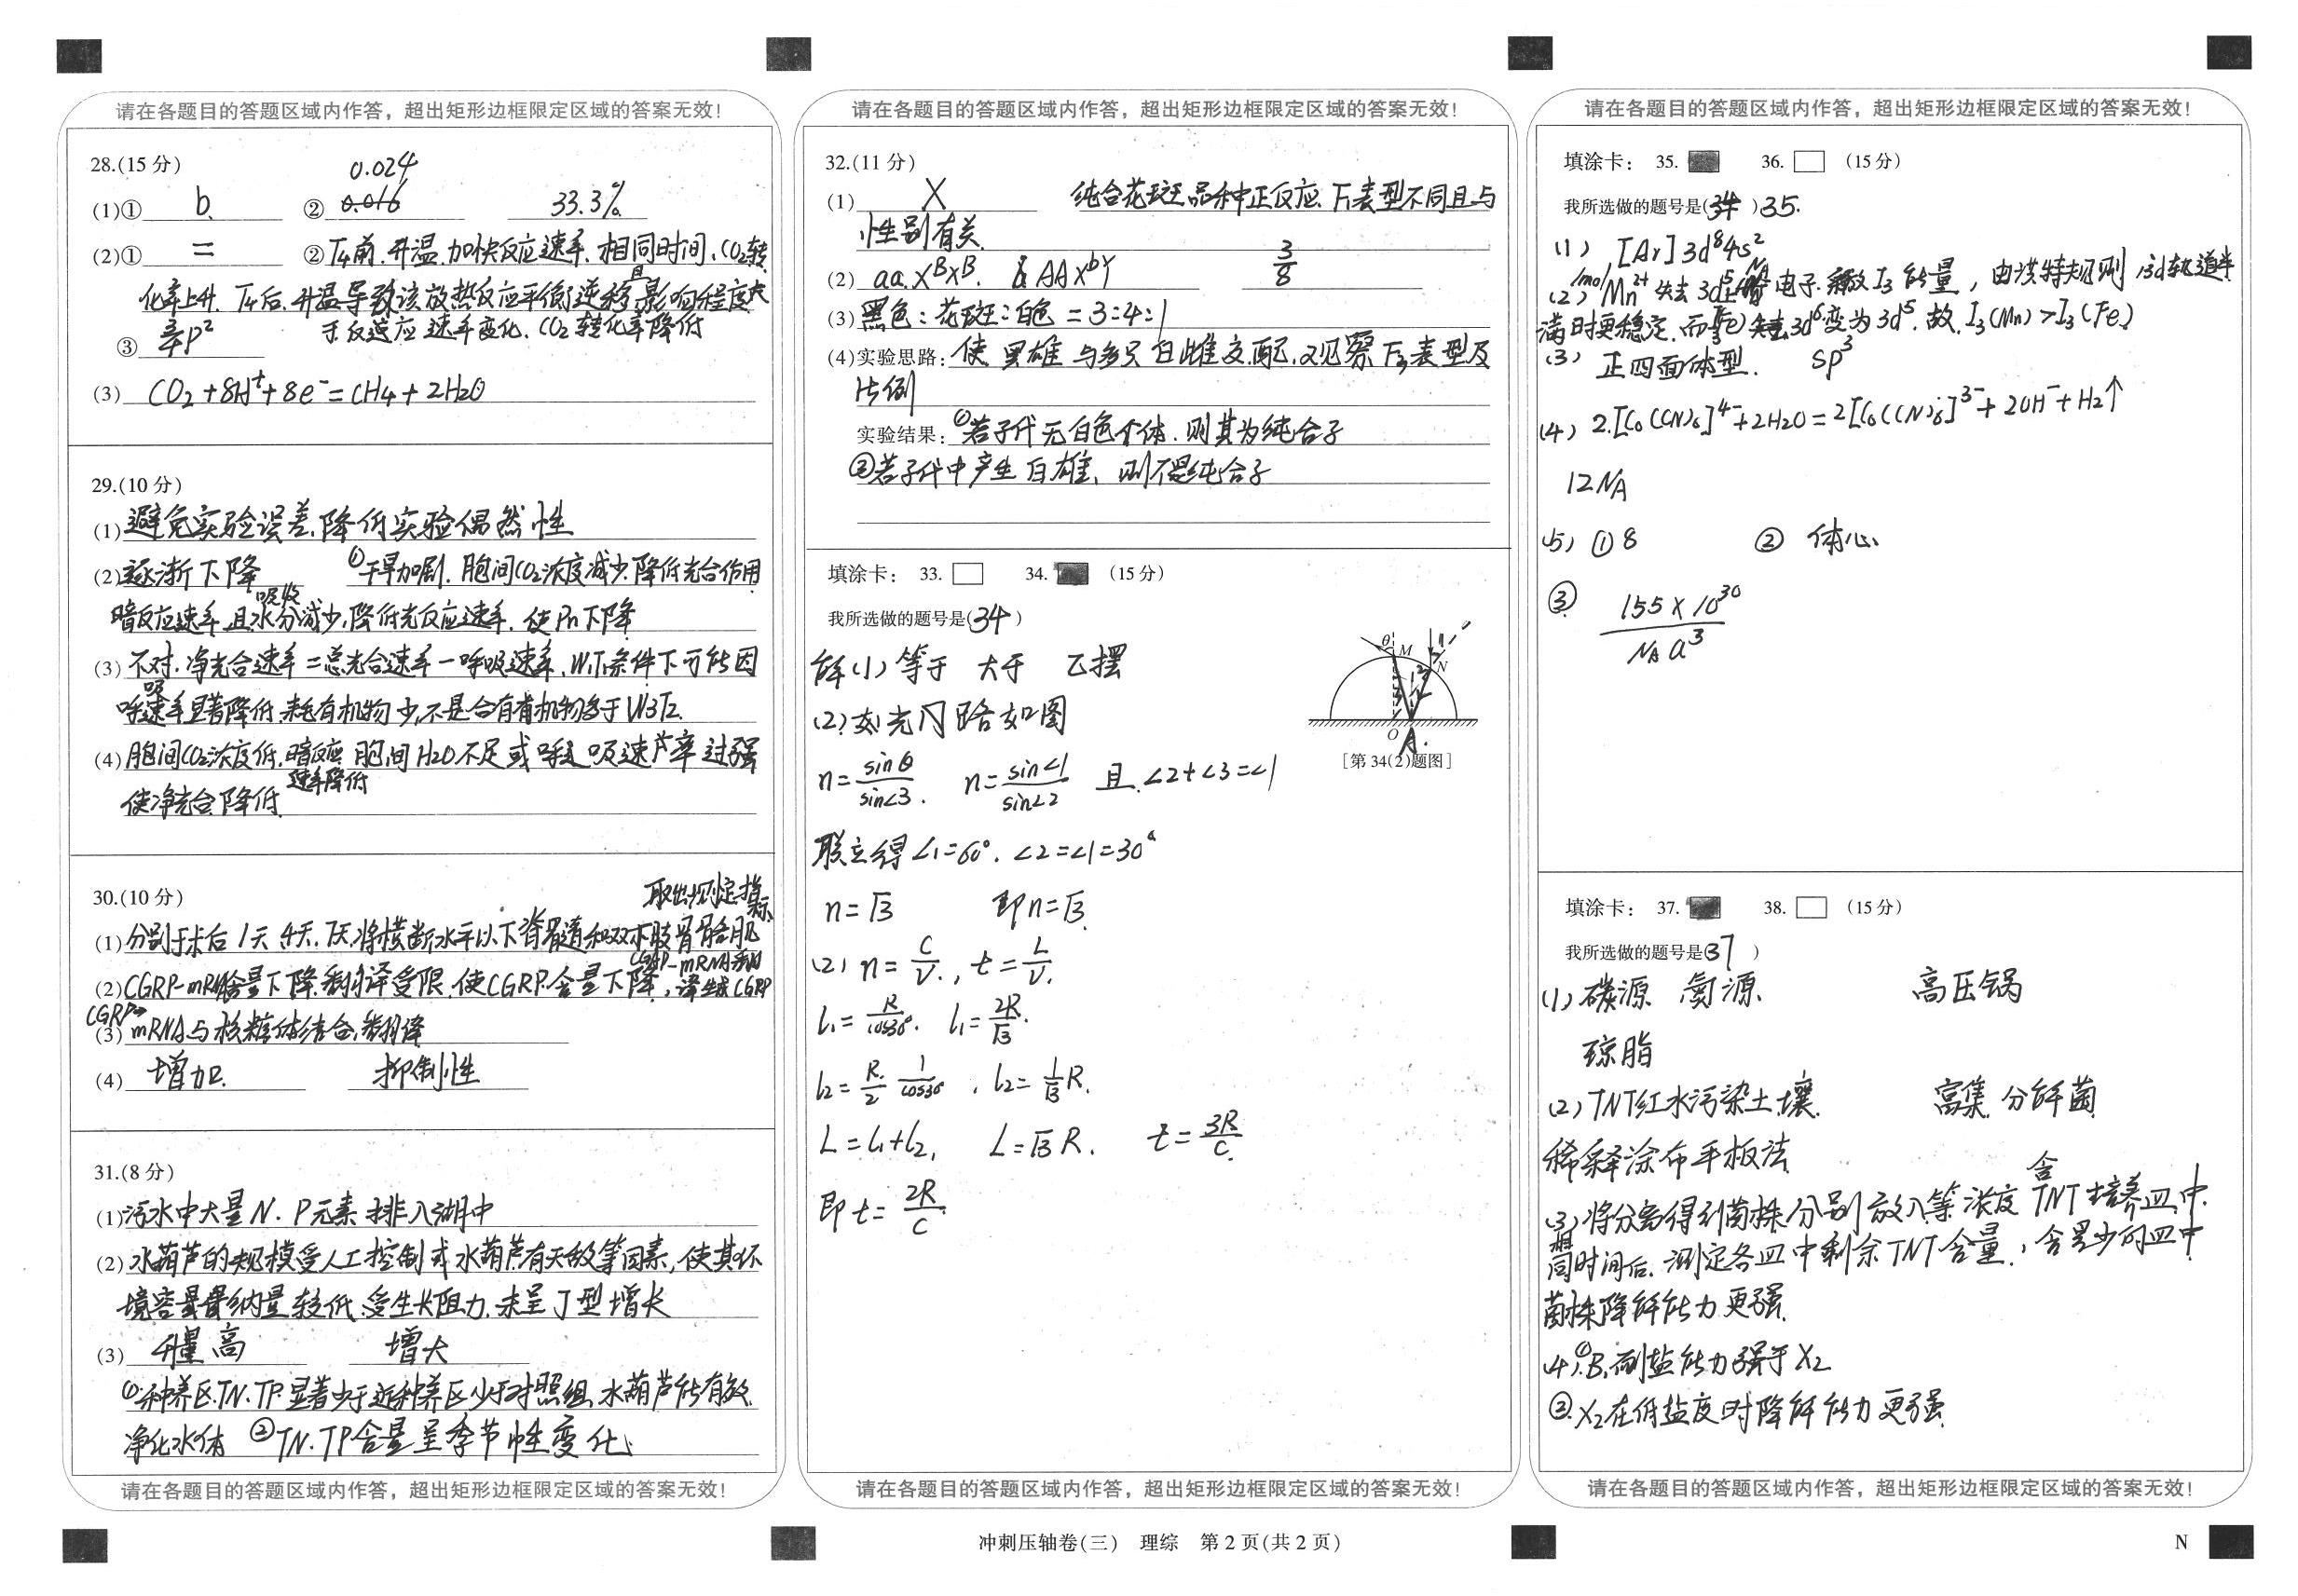 请在各题目的答题区域内作答，超出矩形边框限定区域的答案无效！
28.(15分)
0.024
(1)① b. ② 0.016 33.3%
(2)① = ② T4前.升温.加快反应速率.相同时间、CO2转
化率上升. T4后.升温导致该放热反应平衡逆移且影响程度大
于反应速率变化. CO2转化率降低
③
(3) CO2+8H⁺+8e⁻=CH4+2H2O
29.(10分)
(1)避免实验误差.降低实验偶然性
(2)逐渐下降 ①干旱加剧.胞间CO2浓度减少.降低光合作用
暗反应速率.且水分吸收减少,降低光反应速率.使Pn下降
(3)不对.净光合速率=总光合速率-呼吸速率.W1T1条件下可能因
呼吸速率显著降低.耗有机物少,不是合有机物多于W3T2.
(4)胞间CO2浓度低.暗反应速率降低 胞间H2O不足或呼吸速率过强
使净光合降低
30.(10分)
取出测定指标
(1)分别于术后1天 4天.7天,将横断水平以下脊髓和双下肢骨骼肌
(2)CGRP-mRNA含量下降.翻译受限.使CGRP含量下降, CGRP-mRNA翻译生成CGRP
(3) CGRP-mRNA与核糖体结合,翻译
(4) 增加. 抑制性
31.(8分)
(1)污水中大量N.P元素排入湖中
(2)水葫芦的规模受人工控制或水葫芦有天敌等因素,使其环
境容纳量较低.受生长阻力.未呈J型增长
(3) 升高 增大
①种养区.TN.TP显著少于近种养区少于对照组.水葫芦能有效
净化水体 ②TN.TP含量呈季节性变化
请在各题目的答题区域内作答，超出矩形边框限定区域的答案无效！
请在各题目的答题区域内作答，超出矩形边框限定区域的答案无效！
32.(11分)
(1) X 纯合花斑品种正反应.F1表型不同且与
性别有关.
(2) aaXᴮXᴮ. & AAXᵇY 3/8
(3)黑色:花斑:白色=3:4:1
(4)实验思路:使黑雄与多只白雌交配.观察F3表型及
比例
实验结果:①若子代无白色个体.则其为纯合子
②若子代中产生白雄.则不是纯合子
填涂卡： 33. 34. (15分)
我所选做的题号是(34)
解(1)等于 大于 乙摆
(2)光路如图
θ M N O A.
[第34(2)题图]
n=sinθ/sin∠3. n=sin∠1/sin∠2 且.∠2+∠3=∠1
联立得∠1=60°. ∠2=∠1=30°
n=√3 即n=√3.
(2) n=C/V., t=L/V.
l1=R/cos30°. l1=2R/√3.
l2=R/2·1/cos30°, l2=1/√3R.
L=l1+l2, L=√3R. t=3R/C.
即t=2R/C.
请在各题目的答题区域内作答，超出矩形边框限定区域的答案无效！
请在各题目的答题区域内作答，超出矩形边框限定区域的答案无效！
填涂卡： 35. 36. (15分)
我所选做的题号是(34)35.
(1) [Ar]3d⁸4s²
(2) 1mol Mn²⁺失去3d⁵上NA电子.释放I3能量, 由洪特规则,3d轨道半
满时更稳定.而Fe失去3d⁶变为3d⁵.故.I3(Mn)>I3(Fe)
(3) 正四面体型. sp³
(4) 2.[Co(CN)6]⁴⁻+2H2O=2[Co(CN)6]³⁻+2OH⁻+H2↑
12NA
(5) ①8 ② 体心
③ 155×10³⁰/NAa³
填涂卡： 37. 38. (15分)
我所选做的题号是(37)
(1)碳源 氮源. 高压锅
琼脂
(2)TNT红水污染土壤. 富集 分解菌
稀释涂布平板法
(3)将分离得到菌株分别放入等浓度含TNT培养皿中.
相同时间后.测定各皿中剩余TNT含量, 含量少的皿中
菌株降解能力更强.
(4)①B1耐盐能力强于X2
②X2在低盐度时降解能力更强.
请在各题目的答题区域内作答，超出矩形边框限定区域的答案无效！
冲刺压轴卷(三) 理综 第2页(共2页)
N